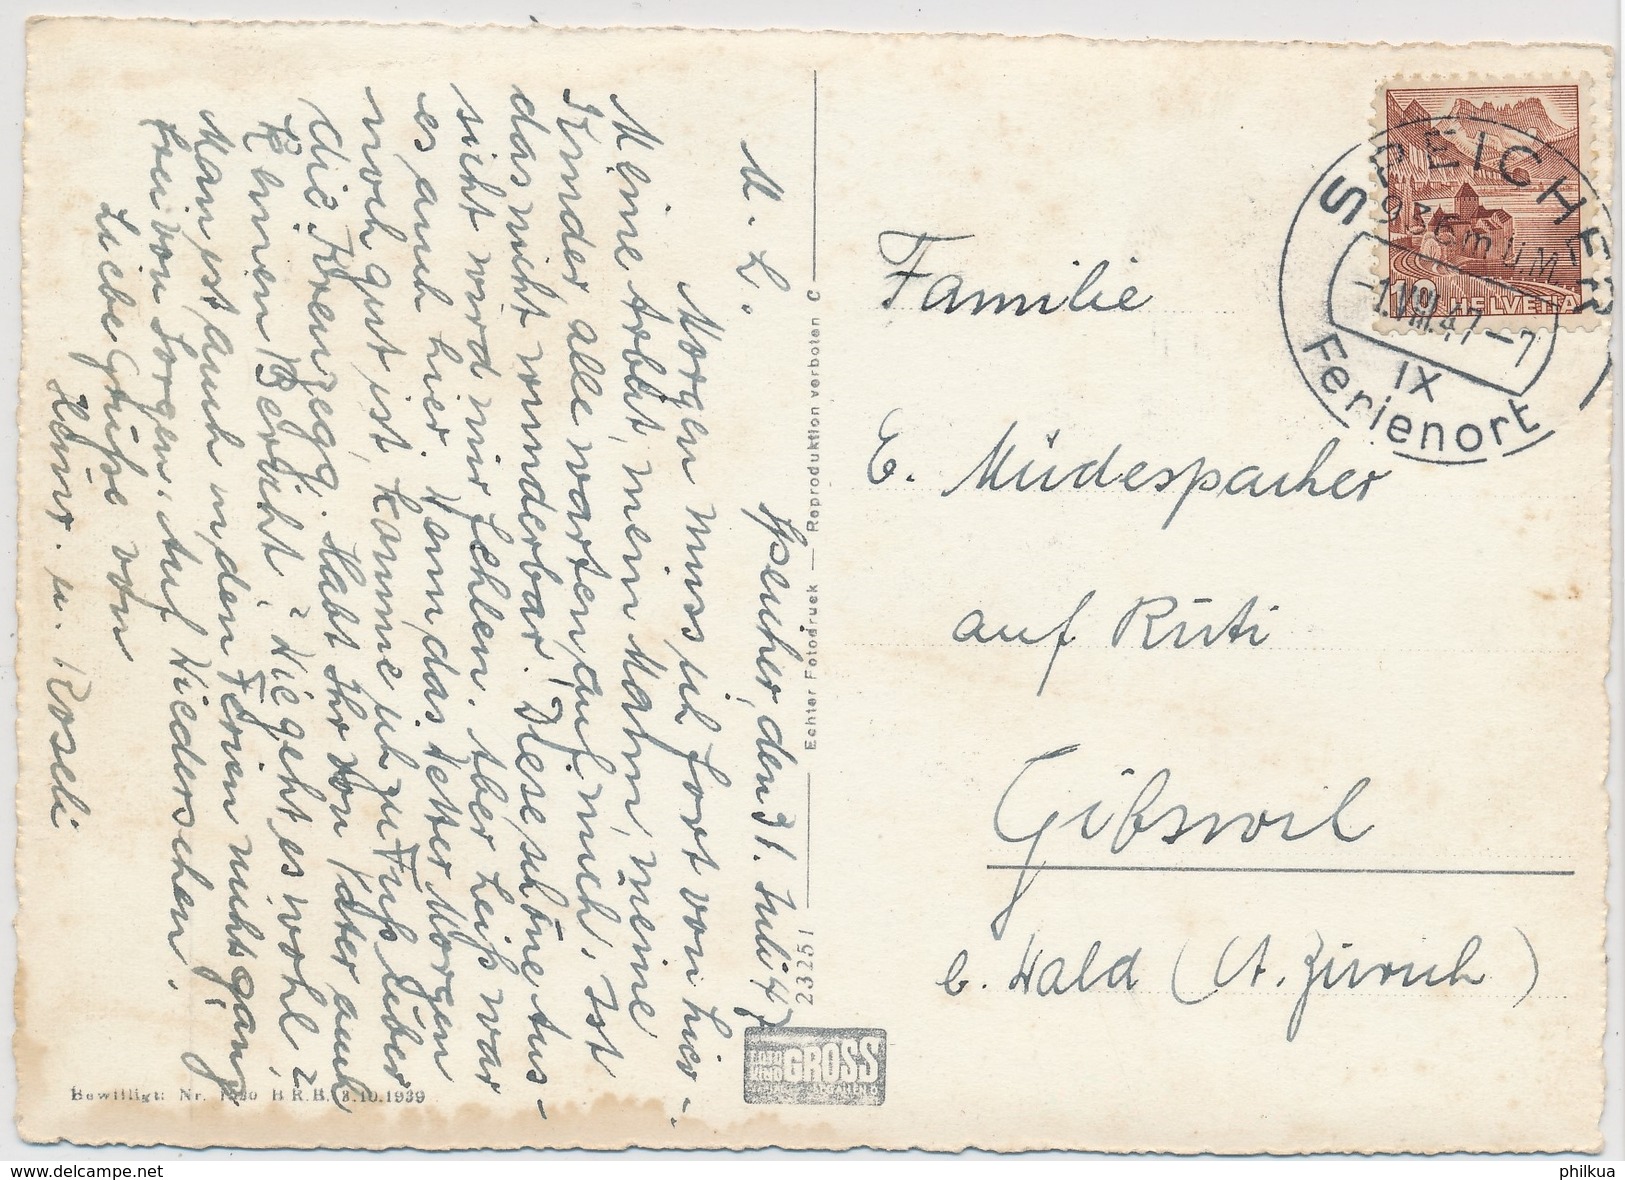 M. L.
Speicher, den 31. Juli 47
Morgen muss ich fort von hier.
Meine Arbeit, mein Mann, meine
Kinder, alle warten auf mich. Ist
das nicht wunderbar! Diese schöne Aus-
sicht wird mir fehlen. Aber heiß war
es auch hier. Wenn das Wetter Morgen
noch gut ist, komme ich zu Fuß über
die Kreuzegg. Habt Ihr von Vater auch
keinen Bericht? Wie geht es wohl?
Man ist auch in den Ferien nicht ganz
frei von Sorgen. Auf Wiedersehen.
Liebe Grüße von
Heinr. u. Roseli
Echter Fotodruck — Reproduktion verboten C
23251
FOTO KINO GROSS
Bewilligt: Nr. BRB. 3.10.1939
HELVETIA
10
SPEICHER
936 m ü. M.
-1.VIII.47-7
IX
Ferienort
Familie
E. Müdespacher
auf Rüti
Gibswil
b. Wald (Kt. Zürich)
delcampe.net
philkua